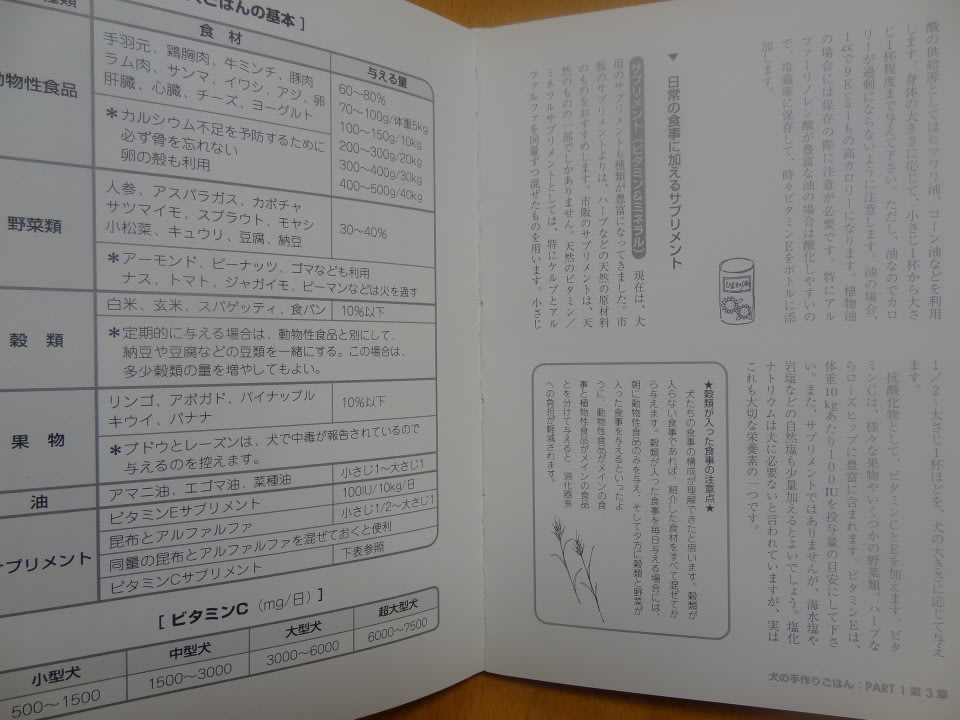 ごはんの基本］
食 材
与える量
動物性食品
手羽元、鶏胸肉、牛ミンチ、豚肉
ラム肉、サンマ、イワシ、アジ、卵
肝臓、心臓、チーズ、ヨーグルト
＊カルシウム不足を予防するために
必ず骨を忘れない
卵の殻も利用
60〜80％
70〜100g/体重5kg
100〜150g/10kg
200〜300g/20kg
300〜400g/30kg
400〜500g/40kg
野菜類
人参、アスパラガス、カボチャ
サツマイモ、スプラウト、モヤシ
小松菜、キュウリ、豆腐、納豆
30〜40％
＊アーモンド、ピーナッツ、ゴマなども利用
ナス、トマト、ジャガイモ、ピーマンなどは火を通す
穀 類
白米、玄米、スパゲッティ、食パン
10％以下
＊定期的に与える場合は、動物性食品と別にして、
納豆や豆腐などの豆類を一緒にする。この場合は、
多少穀類の量を増やしてもよい。
果 物
リンゴ、アボガド、パイナップル
キウイ、バナナ
10％以下
＊ブドウとレーズンは、犬で中毒が報告されているので
与えるのを控えます。
油
アマニ油、エゴマ油、菜種油
小さじ1〜大さじ1
サプリメント
ビタミンEサプリメント
100IU/10kg/日
昆布とアルファルファ
小さじ1/2〜大さじ1
同量の昆布とアルファルファを混ぜておくと便利
ビタミンCサプリメント
下表参照
［ ビタミンC（mg/日）］
小型犬
中型犬
大型犬
超大型犬
500〜1500
1500〜3000
3000〜6000
6000〜7500
酸の供給源としてはヒマワリ油、コーン油などを利用
します。身体の大きさに応じて、小さじ1杯から大さ
じ1杯程度まで与えて下さい。ただし、油なのでカロ
リーが過剰にならないように注意します。油の場合、
1ccで9Kcalもの高カロリーになります。植物油
の場合は保存の際に注意が必要です。特にアル
ファーリノレン酸が豊富な油の場合は酸化しやすいの
で、冷蔵庫に保存して、時々ビタミンEをボトルに添
加します。
ひまわり油
▼ 日常の食事に加えるサプリメント
サプリメント（ビタミン&ミネラル） 現在は、犬
用のサプリメントも種類が豊富になってきました。市
販のサプリメントよりは、ハーブなどの天然の原材料
のものをおすすめします。市販のサプリメントは、天
然のものの一部でしかありません。天然のビタミン／
ミネラルサプリメントとしては、特にケルプとアル
ファルファを同量ずつ混ぜたものを用います。小さじ
1／2〜大さじ1杯ほどを、犬の大きさに応じて与え
ます。
抗酸化物として、ビタミンCとEを加えます。ビタ
ミンCは、様々な果物やいくつかの野菜類、ハーブな
らローズヒップに豊富に含まれます。ビタミンEは、
体重10kgあたり100IUを投与量の目安にして下さ
い。また、サプリメントではありませんが、海水塩や
岩塩などの自然塩も少量加えるとよいでしょう。塩化
ナトリウムは犬に必要ないと言われていますが、実は
これも大切な栄養素の一つです。
★穀類が入った食事の注意点★
犬たちの食事の構成が理解できたと思います。穀類が
入らない食事であれば、紹介した食材をすべて混ぜてか
ら与えます。穀類が入った食事を毎日与える場合には、
朝に動物性食品のみを与え、そして夕方に穀類と野菜が
入った食事を与えるといったよ
うに、動物性食品がメインの食
事と植物性食品がメインの食品
とを分けて与えると、消化器系
への負担が軽減されます。
犬の手作りごはん：PART 1 第 3 章